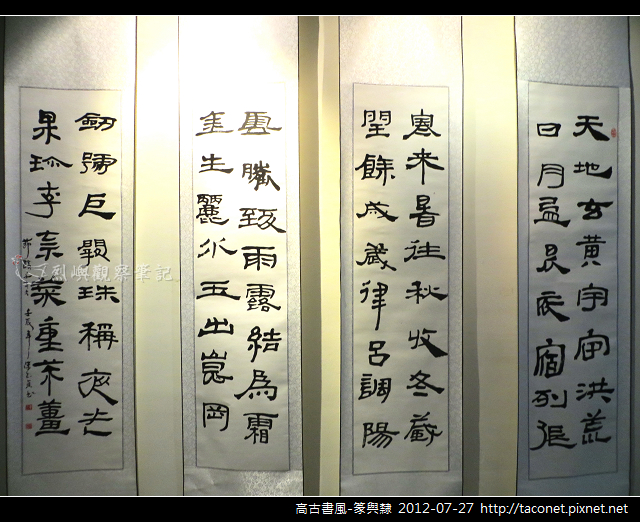 天地玄黃宇宙洪荒
日月盈昃辰宿列張
寒來暑往秋收冬藏
閏餘成歲律呂調陽
雲騰致雨露結為霜
金生麗水玉出崑岡
劍號巨闕珠稱夜光
果珍李柰菜重芥薑
烈嶼觀察筆記
高古書風-篆與隸 2012-07-27 http://taconet.pixnet.net